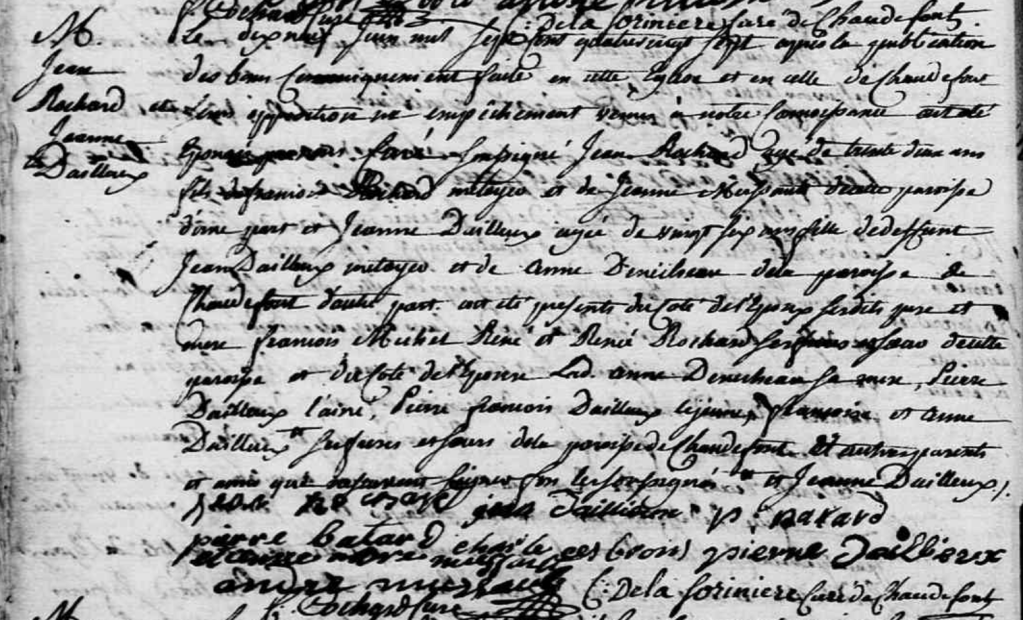 f. Cochard Curé C: De la Soriniere Curé de Chaudefont.
M. Jean Rochard et Jeanne Dailleux
Le dix neuf Juin mil sept cent quatre vingt sept après la publication
des bans Canoniquement faite en cette Eglise et en celle de Chaudefont
sans opposition ne empêchement venu à notre Connoissance ont été
Epousés par nous Curé soussigné Jean Rochard agé de trente deux ans
fils de françois Rochard métayer et de Jeanne de cette paroisse
d'une part et Jeanne Dailleux agée de vingt six ans fille de deffunt
Jean Dailleux métayer et de Anne Deneicheau de la paroisse de
Chaudefont d'autre part. ont été présents du Coté de l'Epoux ses dits pere et
mere françois Michel René et Renée Rochard ses freres et soeur de cette
paroisse et du Coté de l'Epouse Lad. Anne Deneicheau sa mere, Pierre
Dailleux l'ainé, Pierre françois Dailleux le jeune, françoise et Anne
Dailleux ses freres et soeurs de la paroisse de Chaudefont Et autres parents
et amis qui signer fors les soussignés et Jeanne Dailleux
jean p. batard
pierre batard charle pierre Daillieux
andre
f: Cochard Curé C: De la Soriniere Curé de Chaudefont
M.